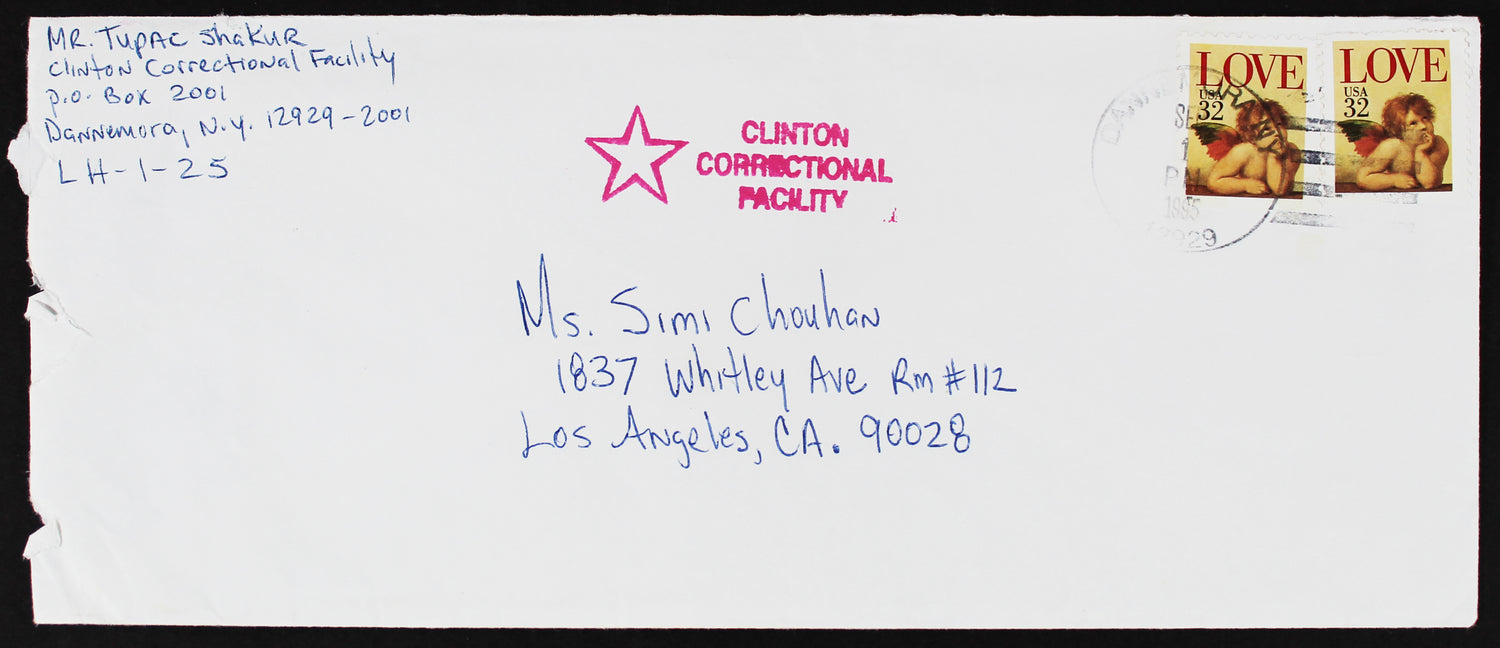 MR. Tupac Shakur
Clinton Correctional Facility
P.O. Box 2001
Dannemora, N.Y. 12929-2001
LH-1-25
CLINTON
CORRECTIONAL
FACILITY
LOVE
USA
32
LOVE
USA
32
PM
1995
Ms. Simi Chouhan
1837 Whitley Ave Rm #112
Los Angeles, CA. 90028